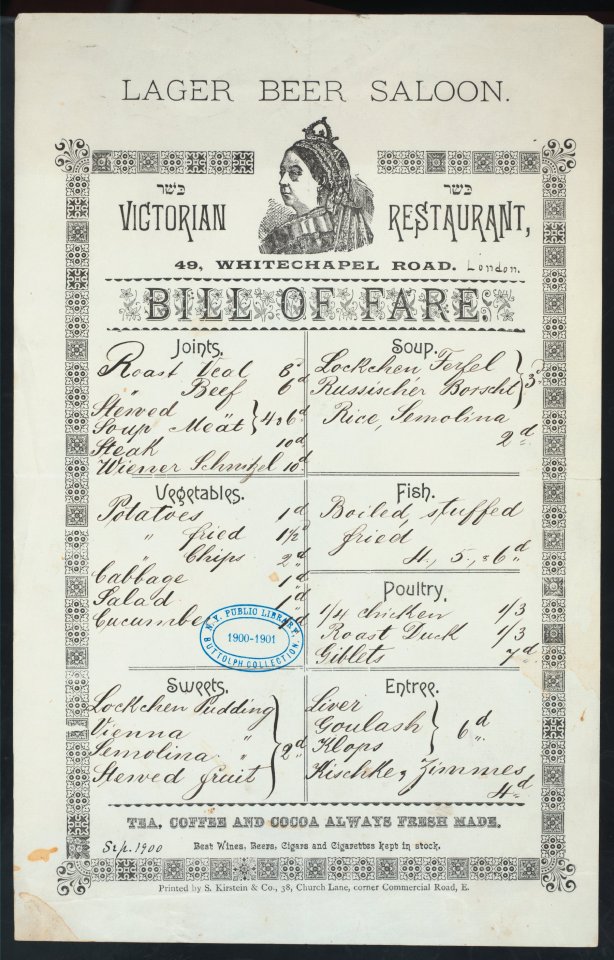 LAGER BEER SALOON.
כשר
כשר
VICTORIAN RESTAURANT,
49, WHITECHAPEL ROAD. London.
BILL OF FARE.
Joints.
Roast Veal 8d
" Beef 6d
Stewed
Soup Meat } 4 & 6d
Steak 10d
Wiener Schnitzel 10d
Soup.
Lockchen Ferfel
Russischer Borscht } 3d
Rice, Semolina
2d
Vegetables.
Potatoes 1d
" fried 1½d
" Chips 2d
Cabbage 1d
Salad "d
Cucumbe
N.Y. PUBLIC LIBRARY
1900-1901
BUTTOLPH COLLECTION.
Fish.
Boiled, stuffed
fried,
4., 5., & 6d
Poultry.
1/4 chicken 1/3
Roast Duck 1/3
Giblets 7d
Sweets.
Lockchen Pudding
Vienna "
Semolina "
Stewed fruit } 2d
Entree.
Liver
Goulash
Klops } 6d
Kischke, Zimmes
4d
TEA, COFFEE AND COCOA ALWAYS FRESH MADE.
Best Wines, Beers, Cigars and Cigarettes kept in stock.
Sep. 1900
Printed by S. Kirstein & Co., 38, Church Lane, corner Commercial Road, E.